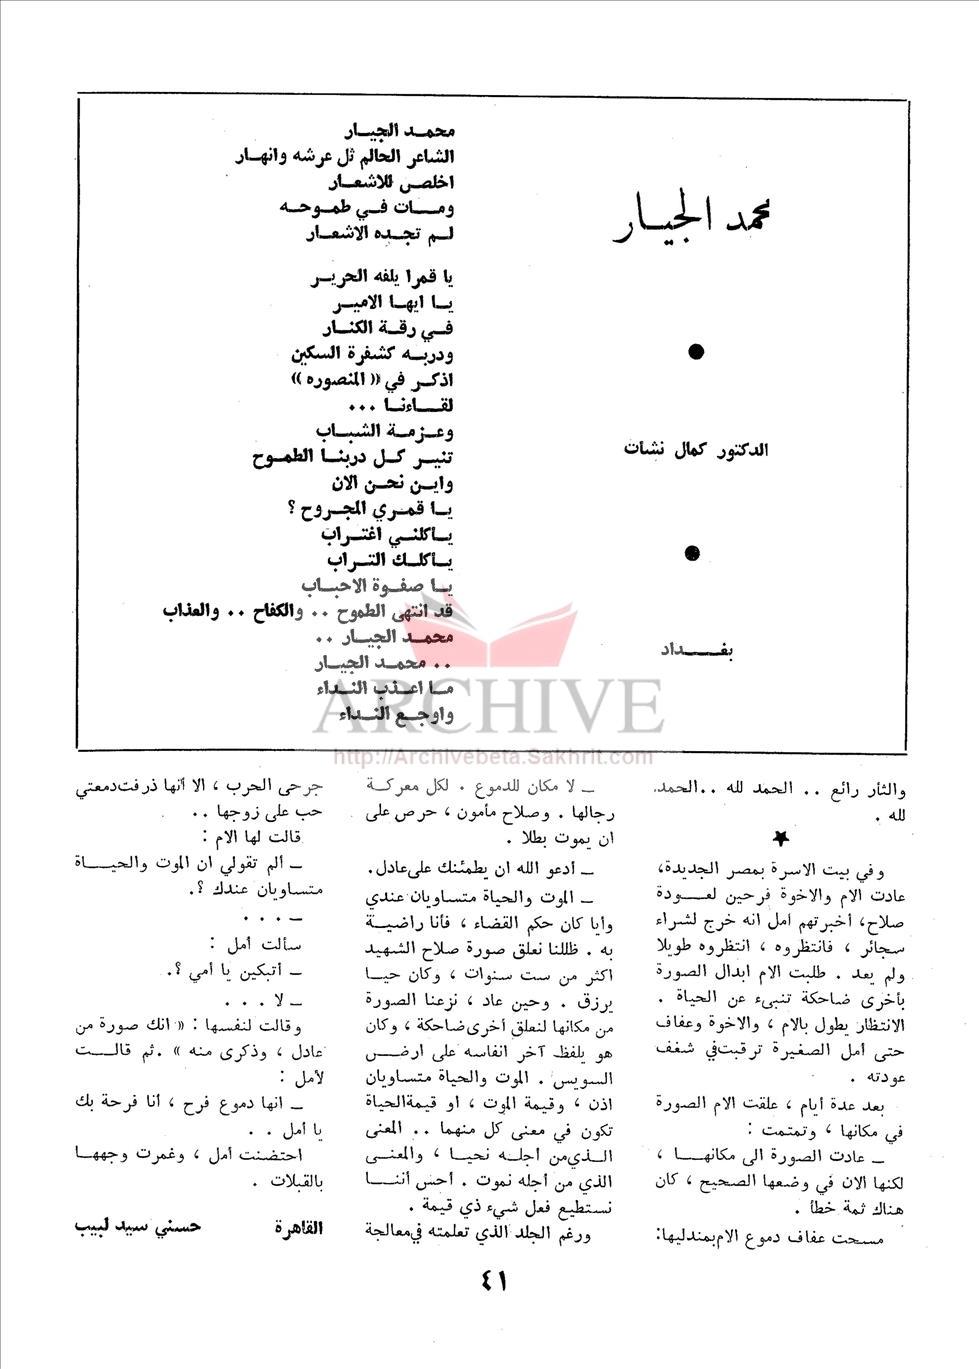 محمد الجيار
الدكتور كمال نشات
بغداد
محمد الجيار
الشاعر الحالم ثل عرشه وانهار
اخلص للاشعار
ومات في طموحه
لم تجده الاشعار
يا قمرا يلفه الحرير
يا ايها الامير
في رقة الكنار
ودربه كشفرة السكين
اذكر في « المنصوره »
لقاءنا ...
وعزمة الشباب
تنير كل دربنا الطموح
واين نحن الان
يا قمري المجروح ؟
ياكلني اغتراب
يأكلك التراب
يا صفوة الاحباب
قد انتهى الطموح .. والكفاح .. والعذاب
محمد الجيار ..
.. محمد الجيار
ما اعذب النداء
واوجع النداء
ARCHIVE
http://Archivebeta.Sakhrit.com
والثأر رائع .. الحمد لله .. الحمد
لله .
وفي بيت الاسرة بمصر الجديدة،
عادت الام والاخوة فرحين لعودة
صلاح، أخبرتهم أمل انه خرج لشراء
سجائر ، فانتظروه ، انتظروه طويلا
ولم يعد . طلبت الام ابدال الصورة
بأخرى ضاحكة تنبيء عن الحياة .
الانتظار يطول بالام ، والاخوة وعفاف
حتى أمل الصغيرة ترقبت في شغف
عودته .
بعد عدة أيام ، علقت الام الصورة
في مكانها ، وتمتمت :
ـ عادت الصورة الى مكانها ،
لكنها الان في وضعها الصحيح ، كان
هناك ثمة خطأ .
مسحت عفاف دموع الام بمنديلها:
ـ لا مكان للدموع . لكل معركة
رجالها . وصلاح مأمون ، حرص على
ان يموت بطلا .
ـ أدعو الله ان يطمئنك على عادل.
ـ الموت والحياة متساويان عندي
وأيا كان حكم القضاء ، فأنا راضية
به . ظللنا نعلق صورة صلاح الشهيد
اكثر من ست سنوات ، وكان حيا
يرزق . وحين عاد ، نزعنا الصورة
من مكانها لنعلق أخرى ضاحكة ، وكان
هو يلفظ آخر انفاسه على ارض
السويس . الموت والحياة متساويان
اذن ، وقيمة الموت ، او قيمة الحياة
تكون في معنى كل منهما .. المعنى
الذي من أجله نحيا ، والمعنى
الذي من أجله نموت . أحس أننا
نستطيع فعل شيء ذي قيمة .
ورغم الجلد الذي تعلمته في معالجة
جرحى الحرب ، الا أنها ذرفت دمعتي
حب على زوجها ..
قالت لها الام :
ـ ألم تقولي ان الموت والحياة
متساويان عندك ؟.
ـ ...
سألت أمل :
ـ أتبكين يا أمي ؟.
ـ لا ...
وقالت لنفسها : « انك صورة من
عادل ، وذكرى منه » . ثم قالت
لأمل :
ـ انها دموع فرح ، أنا فرحة بك
يا أمل . .
احتضنت أمل ، وغمرت وجهها
بالقبلات .
القاهرة حسني سيد لبيب
٤١